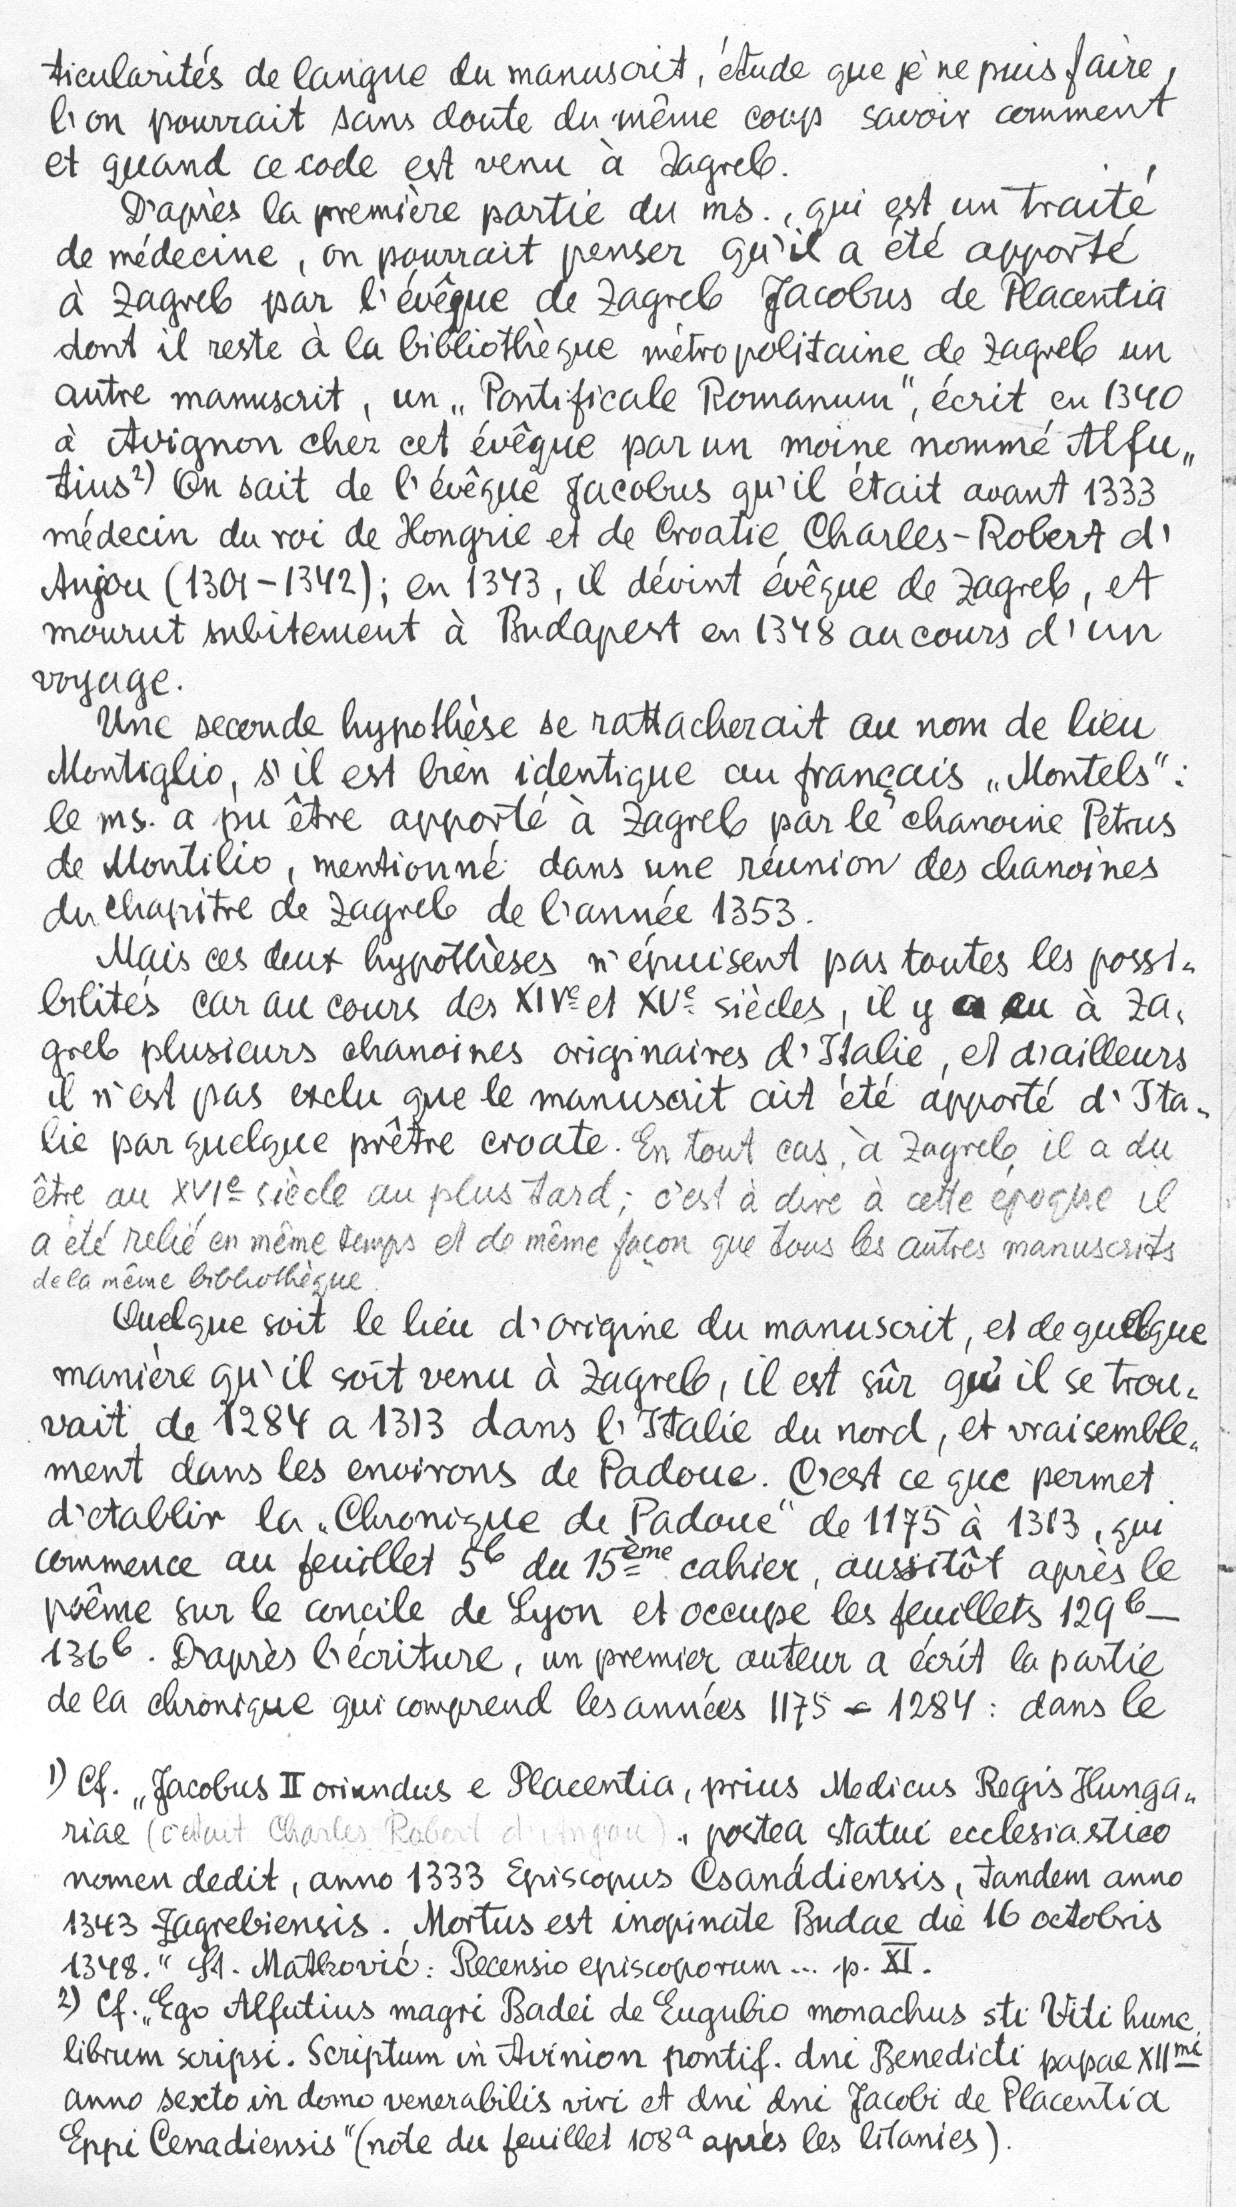 ticularités de langue du manuscrit, étude que je ne puis faire,
l'on pourrait sans doute du même coup savoir comment
et quand ce code est venu à Zagreb.
D'après la première partie du ms., qui est un traité
de médecine, on pourrait penser qu'il a été apporté
à Zagreb par l'évêque de Zagreb Jacobus de Placentia
dont il reste à la bibliothèque métropolitaine de Zagreb un
autre manuscrit, un „Pontificale Romanum“, écrit en 1340
à Avignon chez cet évêque par un moine nommé Alfu„
tius²) On sait de l'évêque Jacobus qu'il était avant 1333
médecin du roi de Hongrie et de Croatie Charles-Robert d'
Anjou (1301-1342); en 1343, il dévint évêque de Zagreb, et
mourut subitement à Budapest en 1348 au cours d'un
voyage.
Une seconde hypothèse se rattacherait au nom de lieu
Montiglio, s'il est bien identique au français „Montels“:
le ms. a pu être apporté à Zagreb par le chanoine Petrus
de Montilio, mentionné dans une réunion des chanoines
du chapitre de Zagreb de l'année 1353.
Mais ces deux hypothèses n'épuisent pas toutes les possi„
bilités car au cours des XIVe et XVe siècles, il y a eu à Za„
greb plusieurs chanoines originaires d'Italie, et d'ailleurs
il n'est pas exclu que le manuscrit ait été apporté d'Ita„
lie par quelque prêtre croate. En tout cas, à Zagreb il a du
être au XVIe siècle au plus tard; c'est à dire à cette époque il
a été relié en même temps et de même façon que tous les autres manuscrits
de la même bibliothèque.
Quelque soit le lieu d'origine du manuscrit, et de quelque
manière qu'il soit venu à Zagreb, il est sûr qu'il se trou„
vait de 1284 a 1313 dans l'Italie du nord, et vraisemble„
ment dans les environs de Padoue. C'est ce que permet
d'etablir la „Chronique de Padoue“ de 1175 à 1313, qui
commence au feuillet 5b du 15ème cahier, aussitôt après le
poême sur le concile de Lyon et occupe les feuillets 129b-
136b. D'après l'écriture, un premier auteur a écrit la partie
de la chronique qui comprend les années 1175 - 1284: dans le
1) Cf. „Jacobus II oriundus e Placentia, prius Medicus Regis Hunga„
riae (c'etait Charles Robert d'Anjou)., postea statui ecclesiastico
nomen dedit, anno 1333 Episcopus Csanádiensis, tandem anno
1343 Zagrebiensis. Mortus est inopinate Budae die 16 octobris
1348.“ Cf. Matković: Recensio episcoporum... p. XI.
2) Cf. „Ego Alfutius magri Badei de Eugubio monachus sti Viti hunc
librum scripsi. Scriptum in Avinion pontif. dni Benedicti papae XIImi
anno sexto in domo venerabilis viri et dni dni Jacobi de Placentia
Eppi Cenadiensis“ (note du feuillet 108a après les litanies).